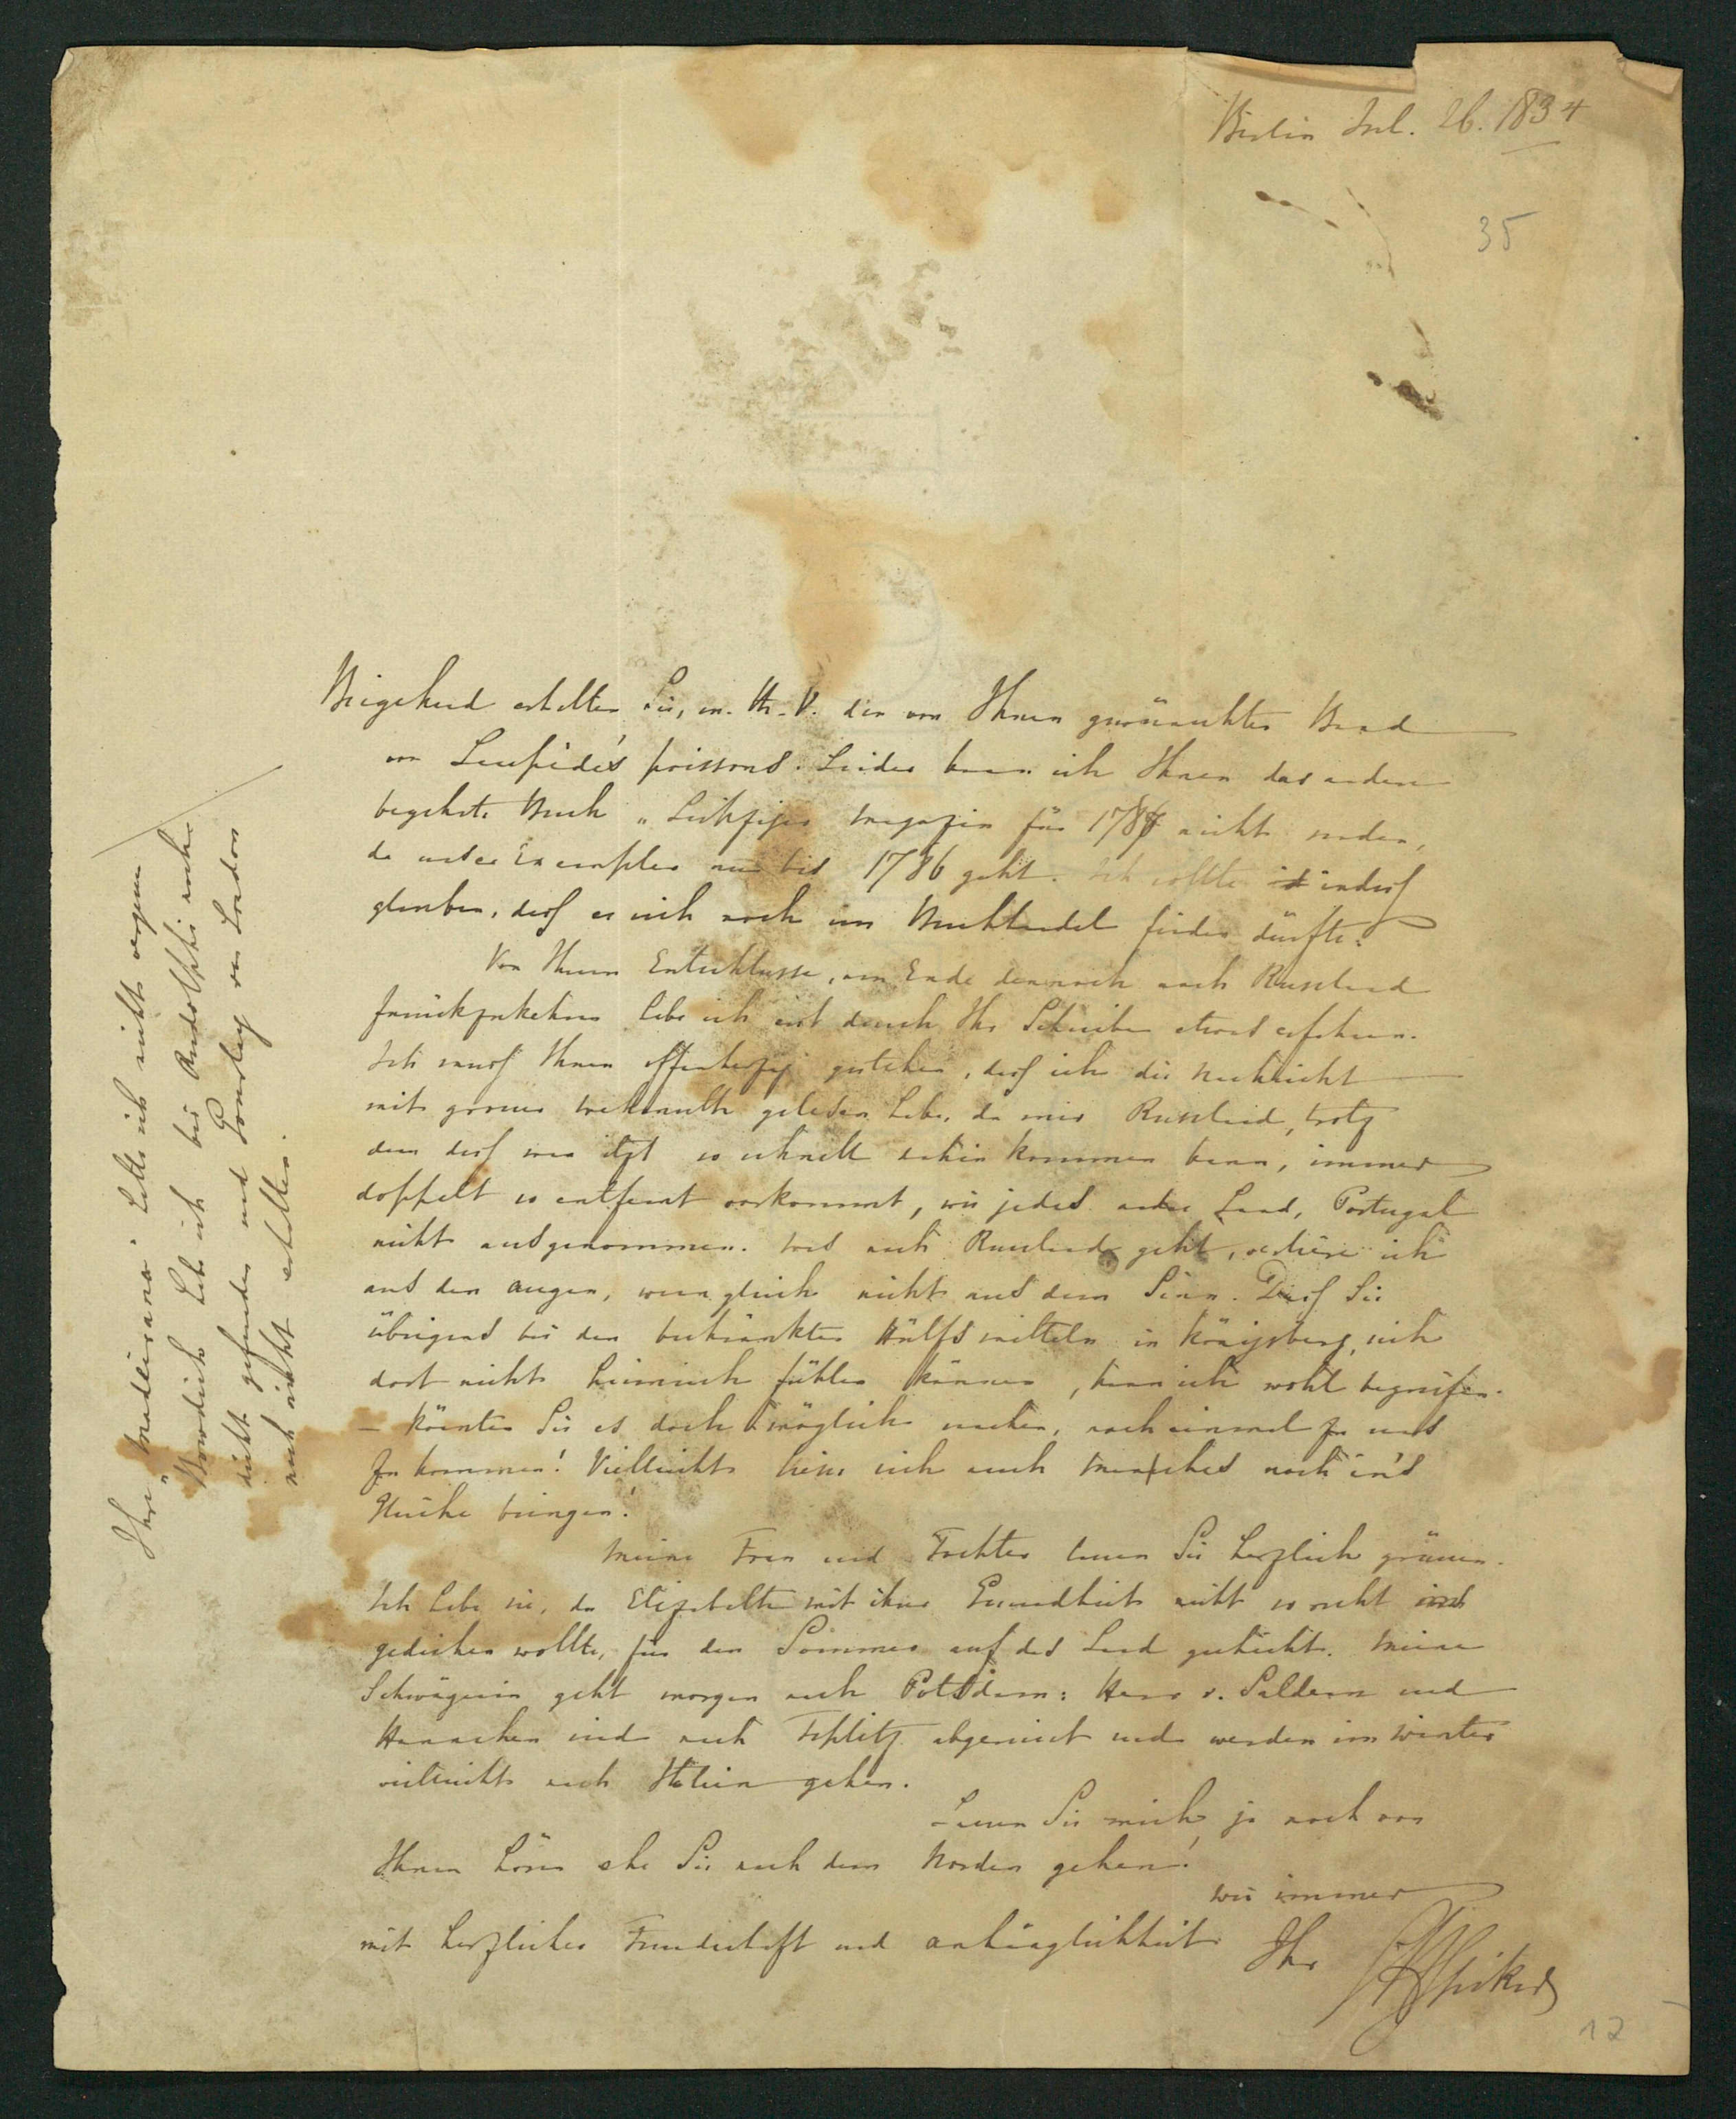 Berlin Jul. 26. 1834
35
Beigehend erhalten Sie, m. Th. V. den von Ihnen gewünschten Band
von Lacépède's poissons. Leider kann ich Ihnen das andere
begehrte Buch „Leipziger Magazin für 1787 nicht senden,
da unser Exemplar nur bis 1786 geht. Ich sollte indess
glauben, dass es sich noch im Buchhandel finden dürfte.
Von Ihrem Entschlusse, am Ende dennoch nach Russland
zurückzukehren habe ich erst durch Ihr Schreiben etwas erfahren.
Ich muss Ihnen offenherzig gestehen, dass ich die Nachricht
mit grosser Wehmuth gelesen habe, da mir Russland, trotz
dem dass man itzt so schnell dahin kommen kann, immer
doppelt so entfernt vorkommt, wie jedes andre Land, Portugal
nicht ausgenommen. Was nach Russland geht, verliere ich
aus den Augen, wenn gleich nicht aus dem Sinn. Dass Sie
übrigens bei den beschränkten Hülfsmitteln in Königsberg, sich
dort nicht heimisch fühlen können, kann ich wohl begreifen.
– Könnten Sie es doch möglich machen, noch einmal zu uns
zu kommen! Vielleicht liesse sich auch manches noch in's
Gleiche bringen!
Meine Frau und Tochter lassen Sie herzlich grüssen.
Ich habe sie, da Elizabeth mit ihrer Gesundheit nicht so recht
gedeihen wollte, für den Sommer auf das Land geschickt. Meine
Schwägerin geht morgen nach Potsdam: Herr v. Saldern und
sind nach Teplitz abgereist und werden im Winter
vielleicht nach Italien gehen.
Lassen Sie mich ja noch von
Ihnen hören ehe Sie nach dem Norden gehen!
Wie immer
mit herzlicher Freundschaft und Anhänglichkeit Ihr SHSpiker
12
Ihre „ hatte ich nicht vergessen
Bowdich habe ich bei Rudolphi's
nicht gefunden und von London
noch nicht erhalten.